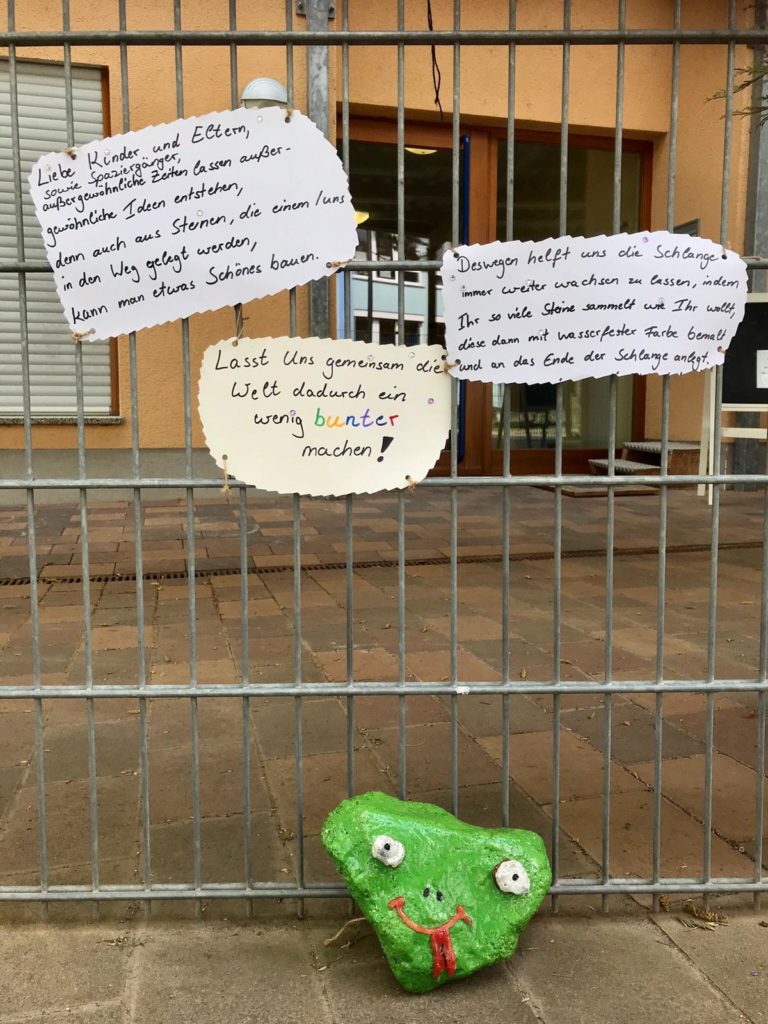 Liebe Kinder und Eltern,
sowie Spaziergänger,
außergewöhnliche Zeiten lassen außer-
gewöhnliche Ideen entstehen,
denn auch aus Steinen, die einem/uns
in den Weg gelegt werden,
kann man etwas Schönes bauen.
Deswegen helft uns die Schlange
immer weiter wachsen zu lassen, indem
Ihr so viele Steine sammelt wie Ihr wollt,
diese dann mit wasserfester Farbe bemalt
und an das Ende der Schlange anlegt.
Lasst Uns gemeinsam die
Welt dadurch ein
wenig bunter
machen!